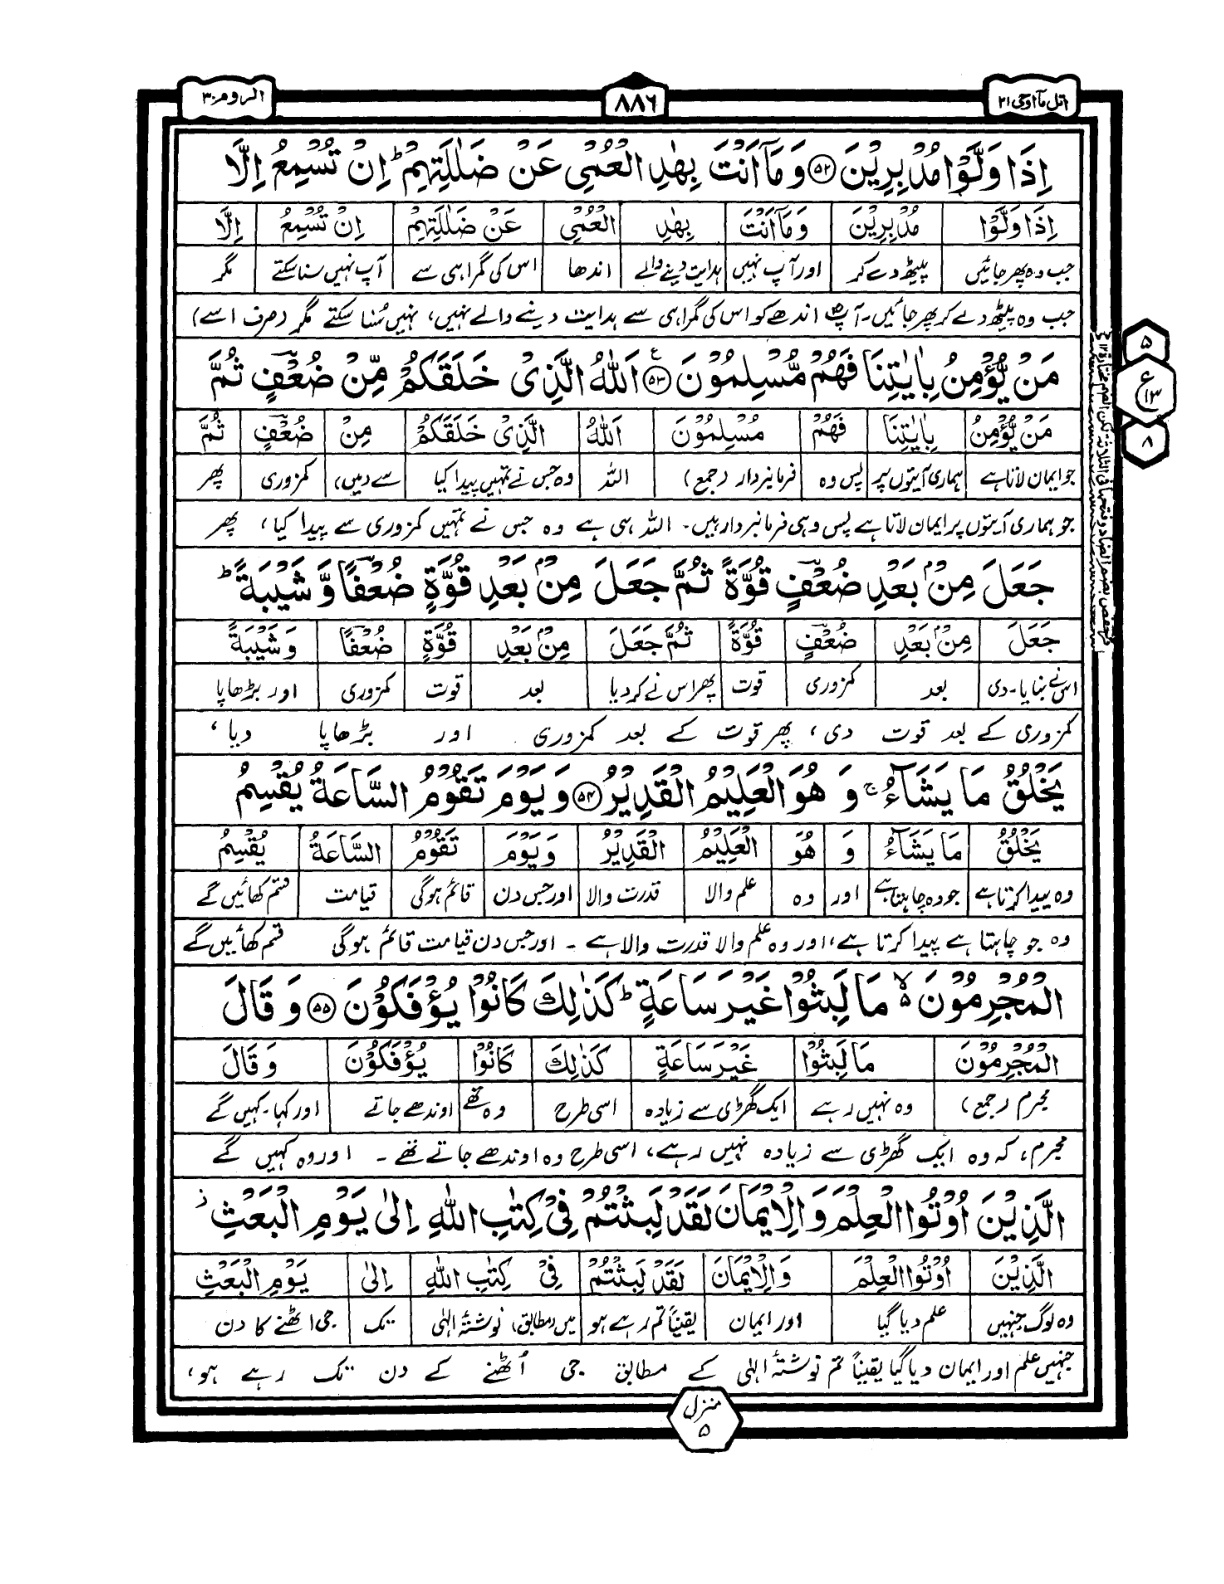 اتل مآ اوحی ۲۱
۸۸۶
الروم ۳۰
اِذَا وَلَّوْا مُدْبِرِیْنَ ۝۵۲ وَمَاۤ اَنْتَ بِهٰدِ الْعُمْیِ عَنْ ضَلٰلَتِهِمْ ؕ اِنْ تُسْمِعُ اِلَّا
اِذَا وَلَّوْا | مُدْبِرِیْنَ | وَمَاۤ اَنْتَ | بِهٰدِ | الْعُمْیِ | عَنْ ضَلٰلَتِهِمْ | اِنْ تُسْمِعُ | اِلَّا
جب وہ پھر جائیں | پیٹھ دے کر | اور آپ نہیں | ہدایت دینے والے | اندھا | اس کی گمراہی سے | آپ نہیں سنا سکتے | مگر
جب وہ پیٹھ دے کر پھر جائیں۔ آپؐ اندھے کو اس کی گمراہی سے ہدایت دینے والے نہیں، نہیں سُنا سکتے مگر (صرف اسے)
مَنْ یُّؤْمِنُ بِاٰیٰتِنَا فَهُمْ مُّسْلِمُوْنَ ۝۵۳ ع اَللّٰهُ الَّذِیْ خَلَقَكُمْ مِّنْ ضُعْفٍ ثُمَّ
مَنْ یُّؤْمِنُ | بِاٰیٰتِنَا | فَهُمْ | مُسْلِمُوْنَ | اَللّٰهُ | الَّذِیْ خَلَقَكُمْ | مِنْ | ضُعْفٍ | ثُمَّ
جو ایمان لاتا ہے | ہماری آیتوں پر | پس وہ | فرمانبردار (جمع) | اللہ | وہ جس نے تمہیں پیدا کیا | سے (میں) | کمزوری | پھر
جو ہماری آیتوں پر ایمان لاتا ہے پس وہی فرمانبردار ہیں۔ اللہ ہی ہے وہ جس نے تمہیں کمزوری سے پیدا کیا، پھر
جَعَلَ مِنْۢ بَعْدِ ضُعْفٍ قُوَّةً ثُمَّ جَعَلَ مِنْۢ بَعْدِ قُوَّةٍ ضُعْفًا وَّشَیْبَةً ؕ
جَعَلَ | مِنْۢ بَعْدِ | ضُعْفٍ | قُوَّةً | ثُمَّ جَعَلَ | مِنْۢ بَعْدِ | قُوَّةٍ | ضُعْفًا | وَشَیْبَةً
اس نے بنایا۔ دی | بعد | کمزوری | قوت | پھر اس نے کر دیا | بعد | قوت | کمزوری | اور بڑھاپا
کمزوری کے بعد قوت دی، پھر قوت کے بعد کمزوری اور بڑھاپا دیا،
یَخْلُقُ مَا یَشَآءُ ۚ وَ هُوَ الْعَلِیْمُ الْقَدِیْرُ ۝۵۴ وَیَوْمَ تَقُوْمُ السَّاعَةُ یُقْسِمُ
یَخْلُقُ | مَا یَشَآءُ | وَ | هُوَ | الْعَلِیْمُ | الْقَدِیْرُ | وَیَوْمَ | تَقُوْمُ | السَّاعَةُ | یُقْسِمُ
وہ پیدا کرتا ہے | جو وہ چاہتا ہے | اور | وہ | علم والا | قدرت والا | اور جس دن | قائم ہوگی | قیامت | قسم کھائیں گے
وہ جو چاہتا ہے پیدا کرتا ہے، اور وہ علم والا قدرت والا ہے۔ اور جس دن قیامت قائم ہوگی قسم کھائیں گے
الْمُجْرِمُوْنَ ۙ۬ مَا لَبِثُوْا غَیْرَ سَاعَةٍ ؕ كَذٰلِكَ كَانُوْا یُؤْفَكُوْنَ ۝۵۵ وَ قَالَ
الْمُجْرِمُوْنَ | مَا لَبِثُوْا | غَیْرَ سَاعَةٍ | كَذٰلِكَ | كَانُوْا | یُؤْفَكُوْنَ | وَ قَالَ
مجرم (جمع) | وہ نہیں رہے | ایک گھڑی سے زیادہ | اسی طرح | وہ تھے | اوندھے جاتے | اور کہا۔ کہیں گے
مجرم، کہ وہ ایک گھڑی سے زیادہ نہیں رہے، اسی طرح وہ اوندھے جاتے تھے۔ اور وہ کہیں گے
الَّذِیْنَ اُوْتُوا الْعِلْمَ وَالْاِیْمَانَ لَقَدْ لَبِثْتُمْ فِیْ كِتٰبِ اللّٰهِ اِلٰی یَوْمِ الْبَعْثِ ز
الَّذِیْنَ | اُوْتُوا الْعِلْمَ | وَالْاِیْمَانَ | لَقَدْ لَبِثْتُمْ | فِیْ كِتٰبِ اللّٰهِ | اِلٰی | یَوْمِ الْبَعْثِ
وہ لوگ جنہیں | علم دیا گیا | اور ایمان | یقیناً تم رہے ہو | میں (مطابق) نوشتۂ الٰہی | تک | جی اٹھنے کا دن
جنہیں علم اور ایمان دیا گیا یقیناً تم نوشتۂ الٰہی کے مطابق جی اُٹھنے کے دن تک رہے ہو،
۵
ع ۱۳
۸
منزل ۵